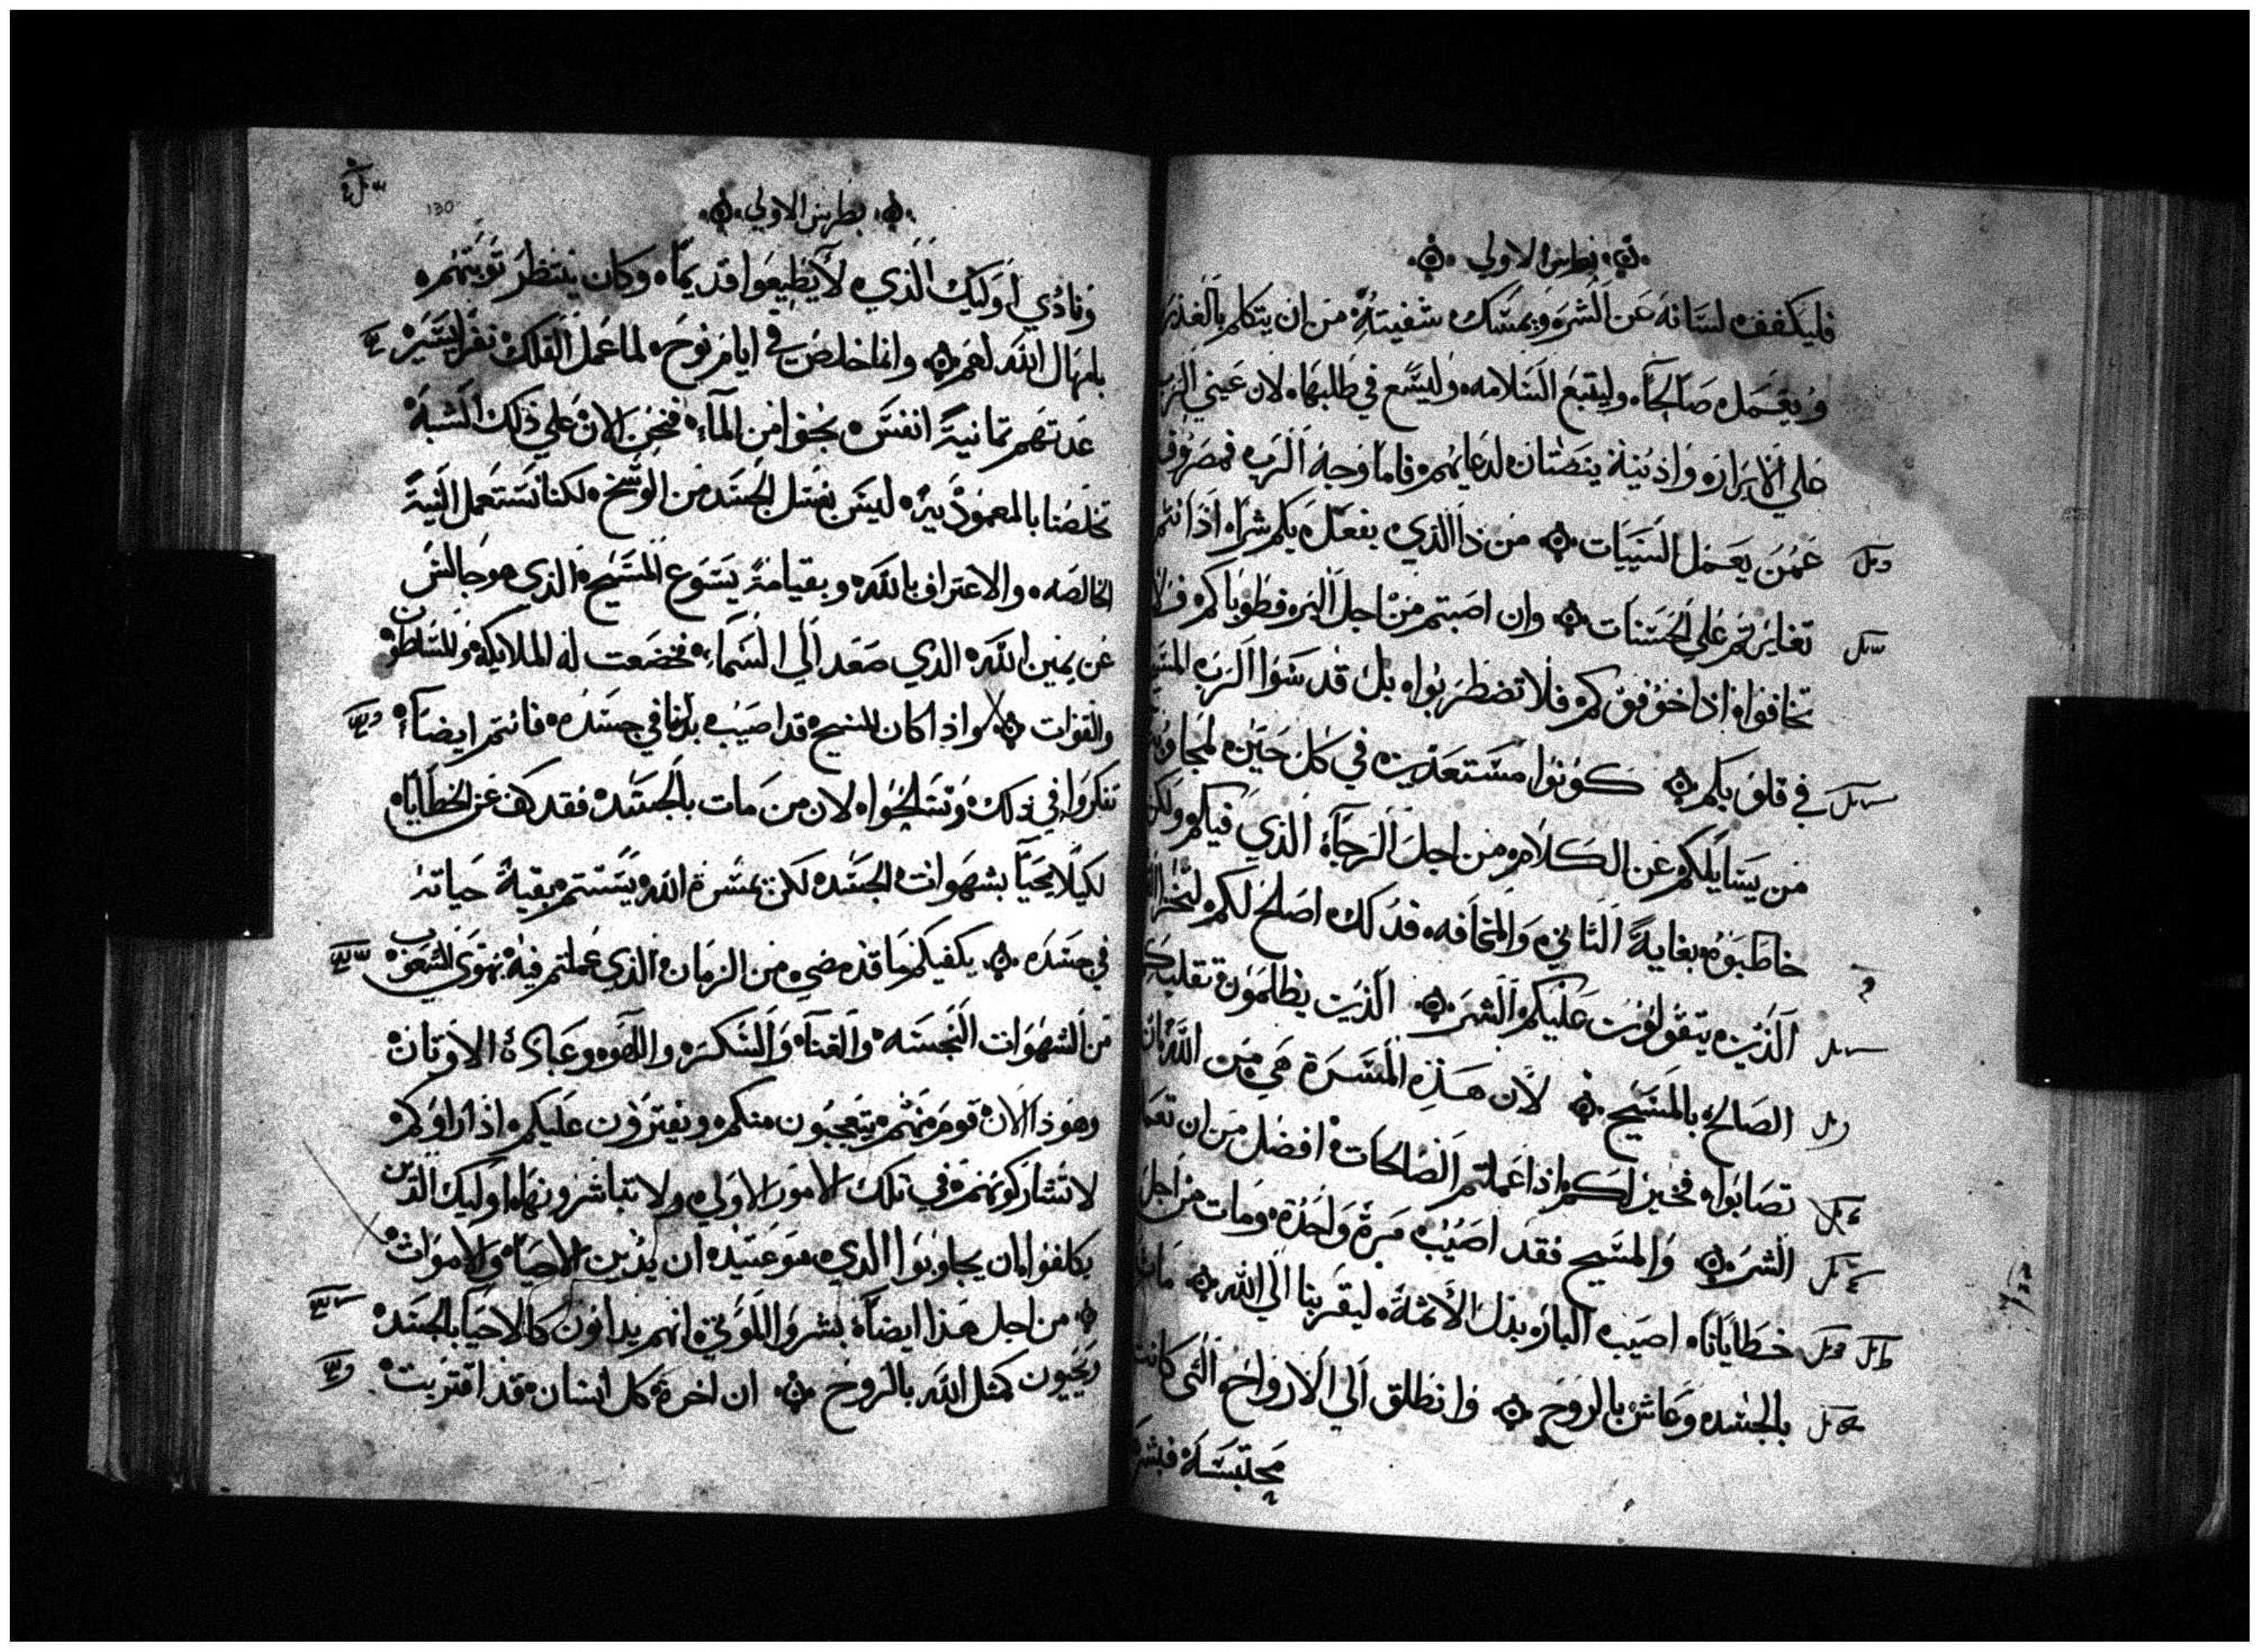 بطرس الاولي
فليكفف لسانه عن الشر ويمسك شفيته من ان يتكلم بالغدر
ويعمل صالحاً وليتبع السلامه وليسع في طلبها لان عيني الرب
علي الابرار واذنيه ينصتان لدعايهم فاما وجه الرب فمصروف
عمن يعمل السييات من ذا الذي يفعل بكم شرا اذا انتم
تغايرتم علي الحسنات وان اصبتم من اجل البر فطوباكم فلا
تخافوا اذا خوفوكم فلا تضطربوا بل قدسوا الرب المسيح
في قلوبكم كونوا مستعدين في كل حين لمجاوبة
من يسايلكم عن الكلام من اجل الرجاء الذي فيكم ولكن
خاطبوه بغاية التاني والمخافه فذلك اصلح لكم
الذين يتقولون عليكم الشر الذين يظلمون تقلبكم
الصالح بالمسيح لان هذه المسرة هي من الله بان
تصابوا فخير لكم اذا عملتم الصالحات افضل من ان تعملوا
الشر والمسيح فقد اصيب مرة واحدة ومات من اجل
خطايانا اصيب البار بدل الاثمة ليقربنا الي الله مات
بالجسد وعاش بالروح وانطلق الي الارواح التي كانت
محتبسة فبشر
130
بطرس الاولي
ونادي اوليك الذي لا يطيعوا قديماً وكان ينتظر توبتهم
بامهال الله لهم وانما خلص في ايام نوح لما عمل الفلك نفر اليسير
عدتهم ثمانية انفس نجوا من الماء فنحن الان علي ذلك الشبه
تخلصنا بالمعموذيه ليس بغسل الجسد من الوسخ لكنا نستعمل النية
الخالصه والاعتراف بالله وبقيامة يسوع المسيح الذي هو جالس
عن يمين الله الذي صعد الي السماء فخضعت له الملايكة والسلطون
والقوات واذا كان المسيح قد اصيب بدلنا في جسده فانتم ايضاً
تفكروا في ذلك وتسلحوا لان من مات بالجسد فقد كف عن الخطايا
لكيلا يحيا بشهوات الجسد لكن بمسرة الله يستتم بقية حياته
في جسده يكفيكم ما قد مضي من الزمان الذي عملتم فيه بهوي الشعوب
من الشهوات النجسه والغناء والسكر واللهو وعبادة الاوثان
وهوذا الان قوم منهم يتعجبون منكم ويفترون عليكم اذا راوكم
لا تشاركونهم في تلك الامور الاولي ولا تباشرونها اوليك الذين
يكلفوا بان يجاوبوا الذي هو عتيد ان يدين الاحياء والاموات
من اجل هذا ايضاً بشروا الموتي انهم يدانون كالاحيا بالجسد
ويحيون كمثل الله بالروح ان اخرة كل انسان قد اقتربت